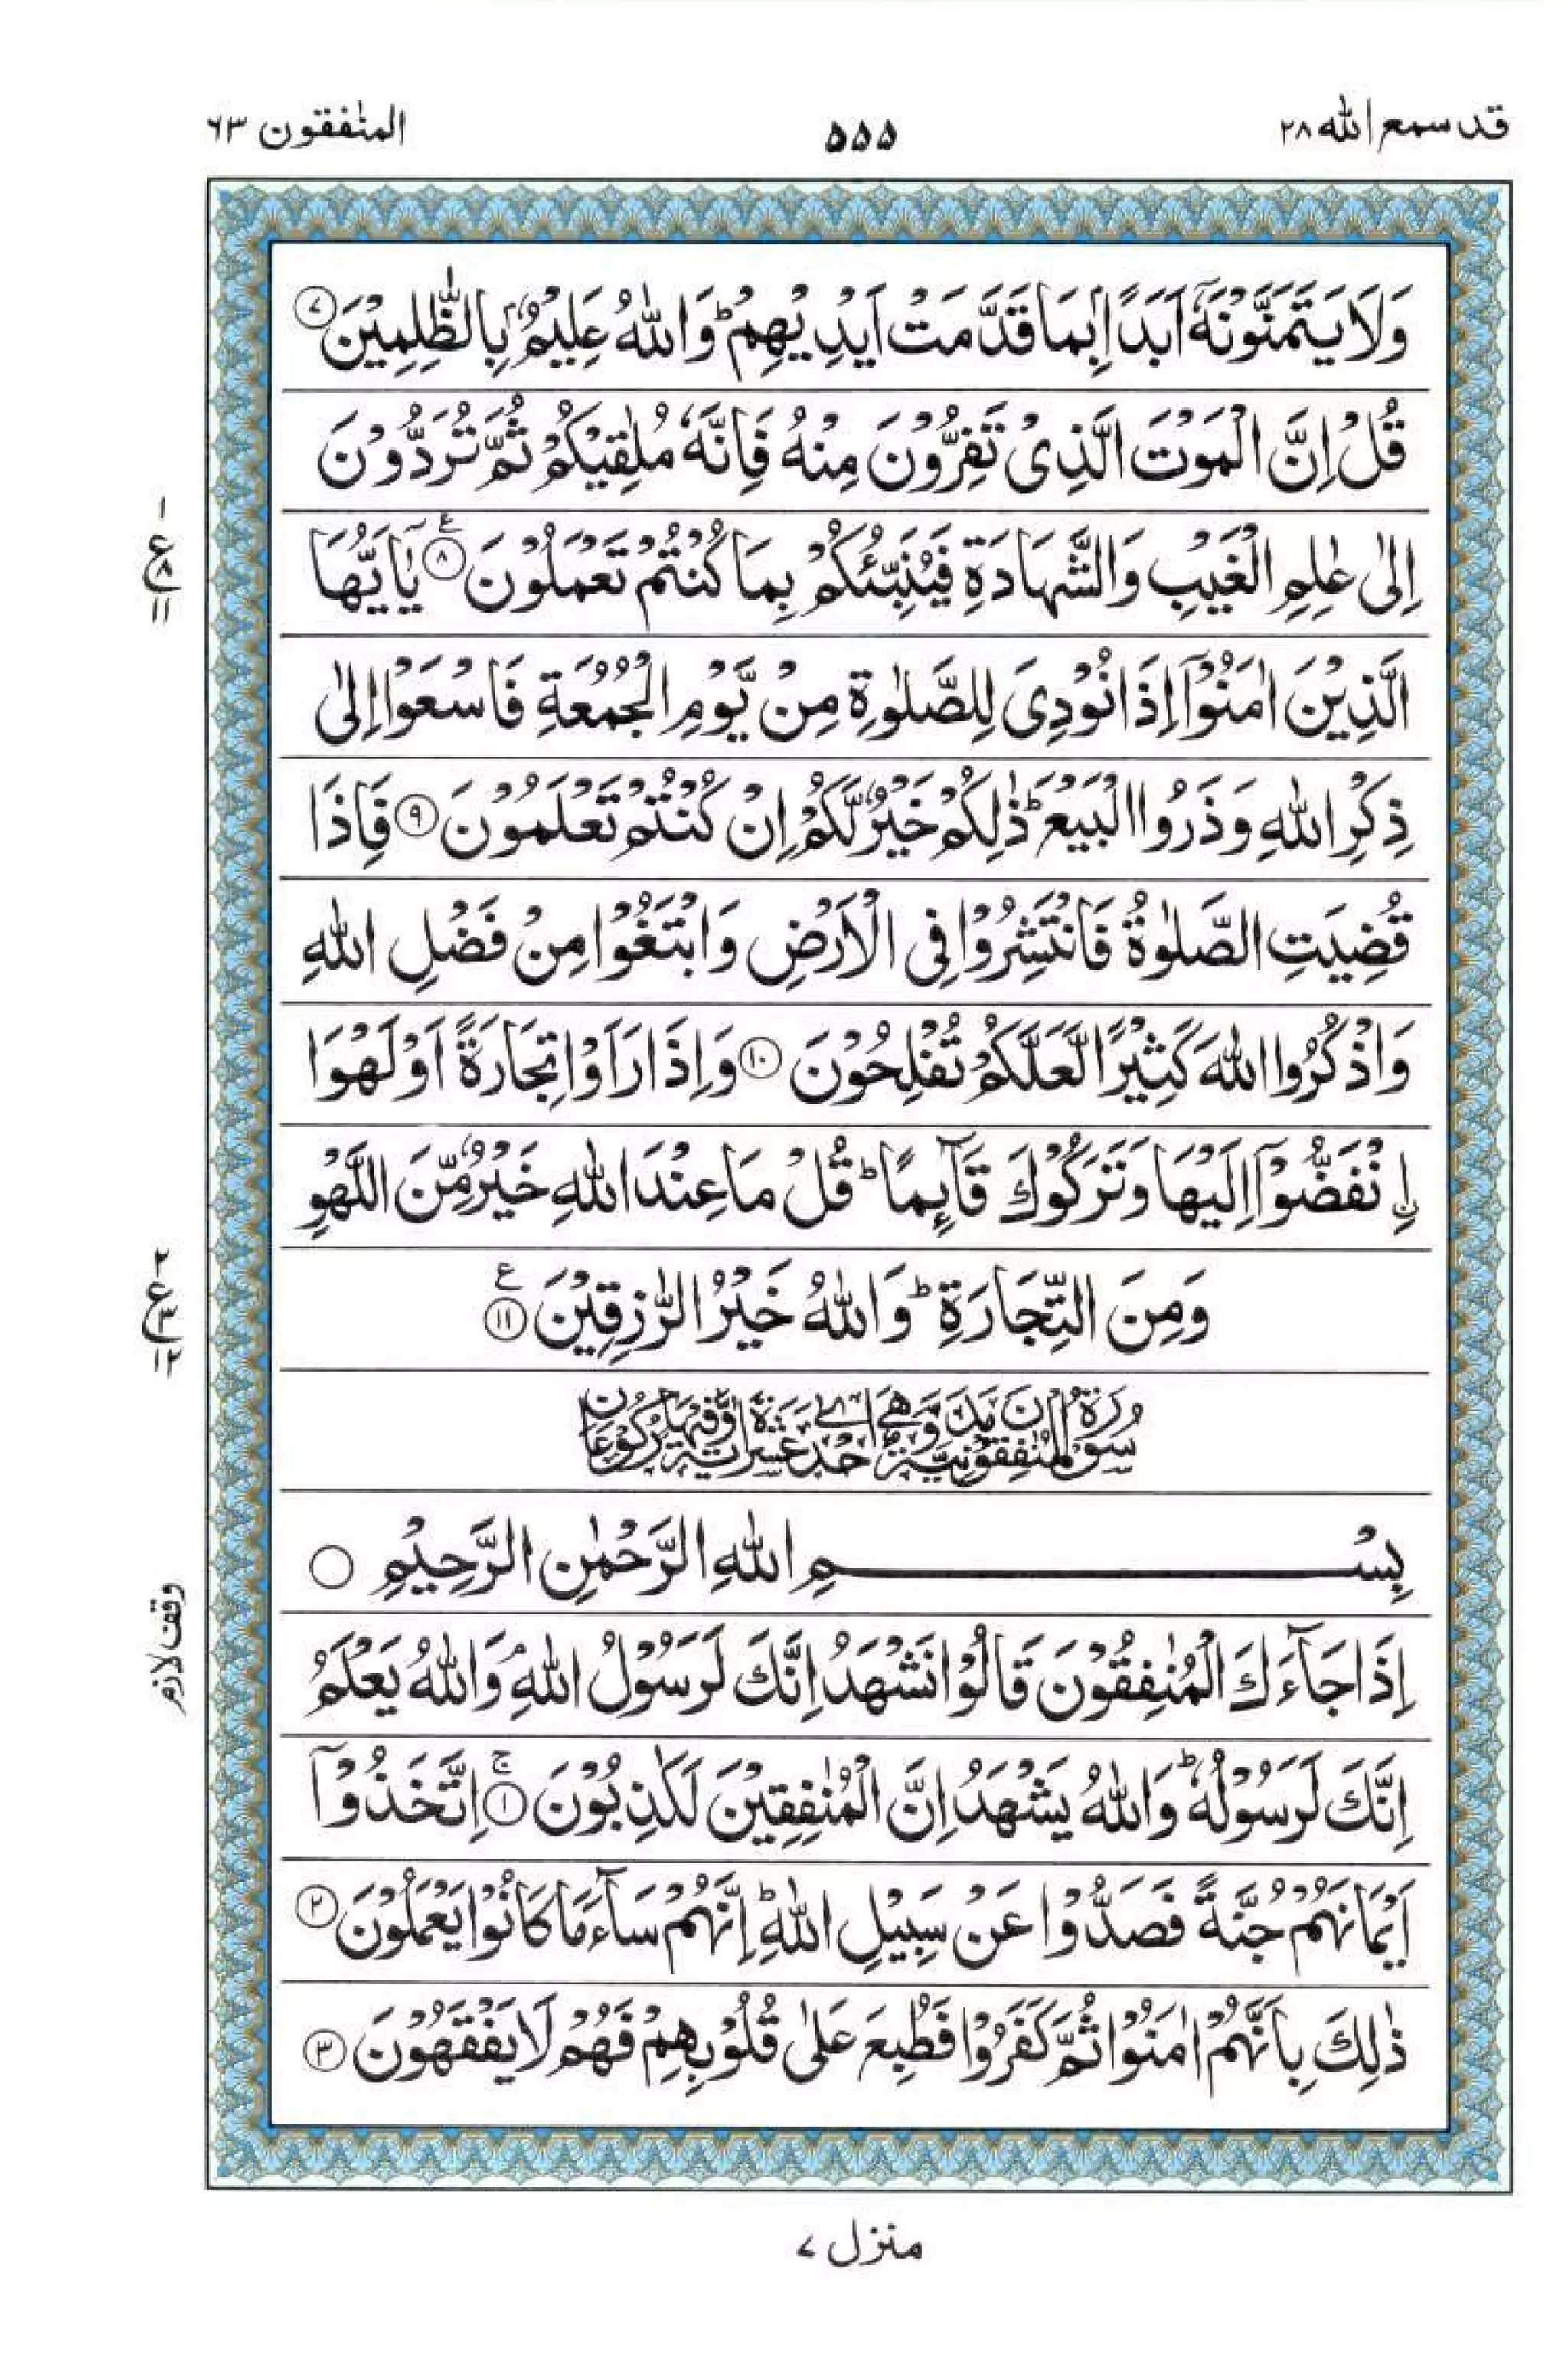 قد سمع الله ٢٨
۵۵۵
المنٰفقون ٦٣
وَلَا يَتَمَنَّوْنَهٗۤ اَبَدًۢا بِمَا قَدَّمَتْ اَيْدِيْهِمْ ؕ وَاللّٰهُ عَلِيْمٌۢ بِالظّٰلِمِيْنَ ۷
قُلْ اِنَّ الْمَوْتَ الَّذِىْ تَفِرُّوْنَ مِنْهُ فَاِنَّهٗ مُلٰقِيْكُمْ ثُمَّ تُرَدُّوْنَ
اِلٰى عٰلِمِ الْغَيْبِ وَالشَّهَادَةِ فَيُنَبِّئُكُمْ بِمَا كُنْتُمْ تَعْمَلُوْنَ ۸ ع يٰۤاَيُّهَا
١ ع ۸ ١١
الَّذِيْنَ اٰمَنُوْۤا اِذَا نُوْدِىَ لِلصَّلٰوةِ مِنْ يَّوْمِ الْجُمُعَةِ فَاسْعَوْا اِلٰى
ذِكْرِ اللّٰهِ وَذَرُوا الْبَيْعَ ؕ ذٰلِكُمْ خَيْرٌ لَّكُمْ اِنْ كُنْتُمْ تَعْلَمُوْنَ ۹ فَاِذَا
قُضِيَتِ الصَّلٰوةُ فَانْتَشِرُوْا فِى الْاَرْضِ وَابْتَغُوْا مِنْ فَضْلِ اللّٰهِ
وَاذْكُرُوا اللّٰهَ كَثِيْرًا لَّعَلَّكُمْ تُفْلِحُوْنَ ١٠ وَاِذَا رَاَوْا تِجَارَةً اَوْ لَهْوَا
اۨنْفَضُّوْۤا اِلَيْهَا وَتَرَكُوْكَ قَآئِمًا ؕ قُلْ مَا عِنْدَ اللّٰهِ خَيْرٌ مِّنَ اللَّهْوِ
وَمِنَ التِّجَارَةِ ؕ وَاللّٰهُ خَيْرُ الرّٰزِقِيْنَ ١١ ع
٢ ع ٣ ١٢
سُوْرَةُ الْمُنٰفِقُوْنَ مَدَنِيَّةٌ وَّهِيَ اِحْدٰى عَشْرَةَ اٰيَةً وَّفِيْهَا رُكُوْعَانِ
بِسْمِ اللّٰهِ الرَّحْمٰنِ الرَّحِيْمِ
اِذَا جَآءَكَ الْمُنٰفِقُوْنَ قَالُوْا نَشْهَدُ اِنَّكَ لَرَسُوْلُ اللّٰهِ ۘ وَاللّٰهُ يَعْلَمُ
وقف لازم
اِنَّكَ لَرَسُوْلُهٗ ؕ وَاللّٰهُ يَشْهَدُ اِنَّ الْمُنٰفِقِيْنَ لَكٰذِبُوْنَ ١ ۚ اِتَّخَذُوْۤا
اَيْمَانَهُمْ جُنَّةً فَصَدُّوْا عَنْ سَبِيْلِ اللّٰهِ ؕ اِنَّهُمْ سَآءَ مَا كَانُوْا يَعْمَلُوْنَ ٢
ذٰلِكَ بِاَنَّهُمْ اٰمَنُوْا ثُمَّ كَفَرُوْا فَطُبِعَ عَلٰى قُلُوْبِهِمْ فَهُمْ لَا يَفْقَهُوْنَ ٣
منزل ۷